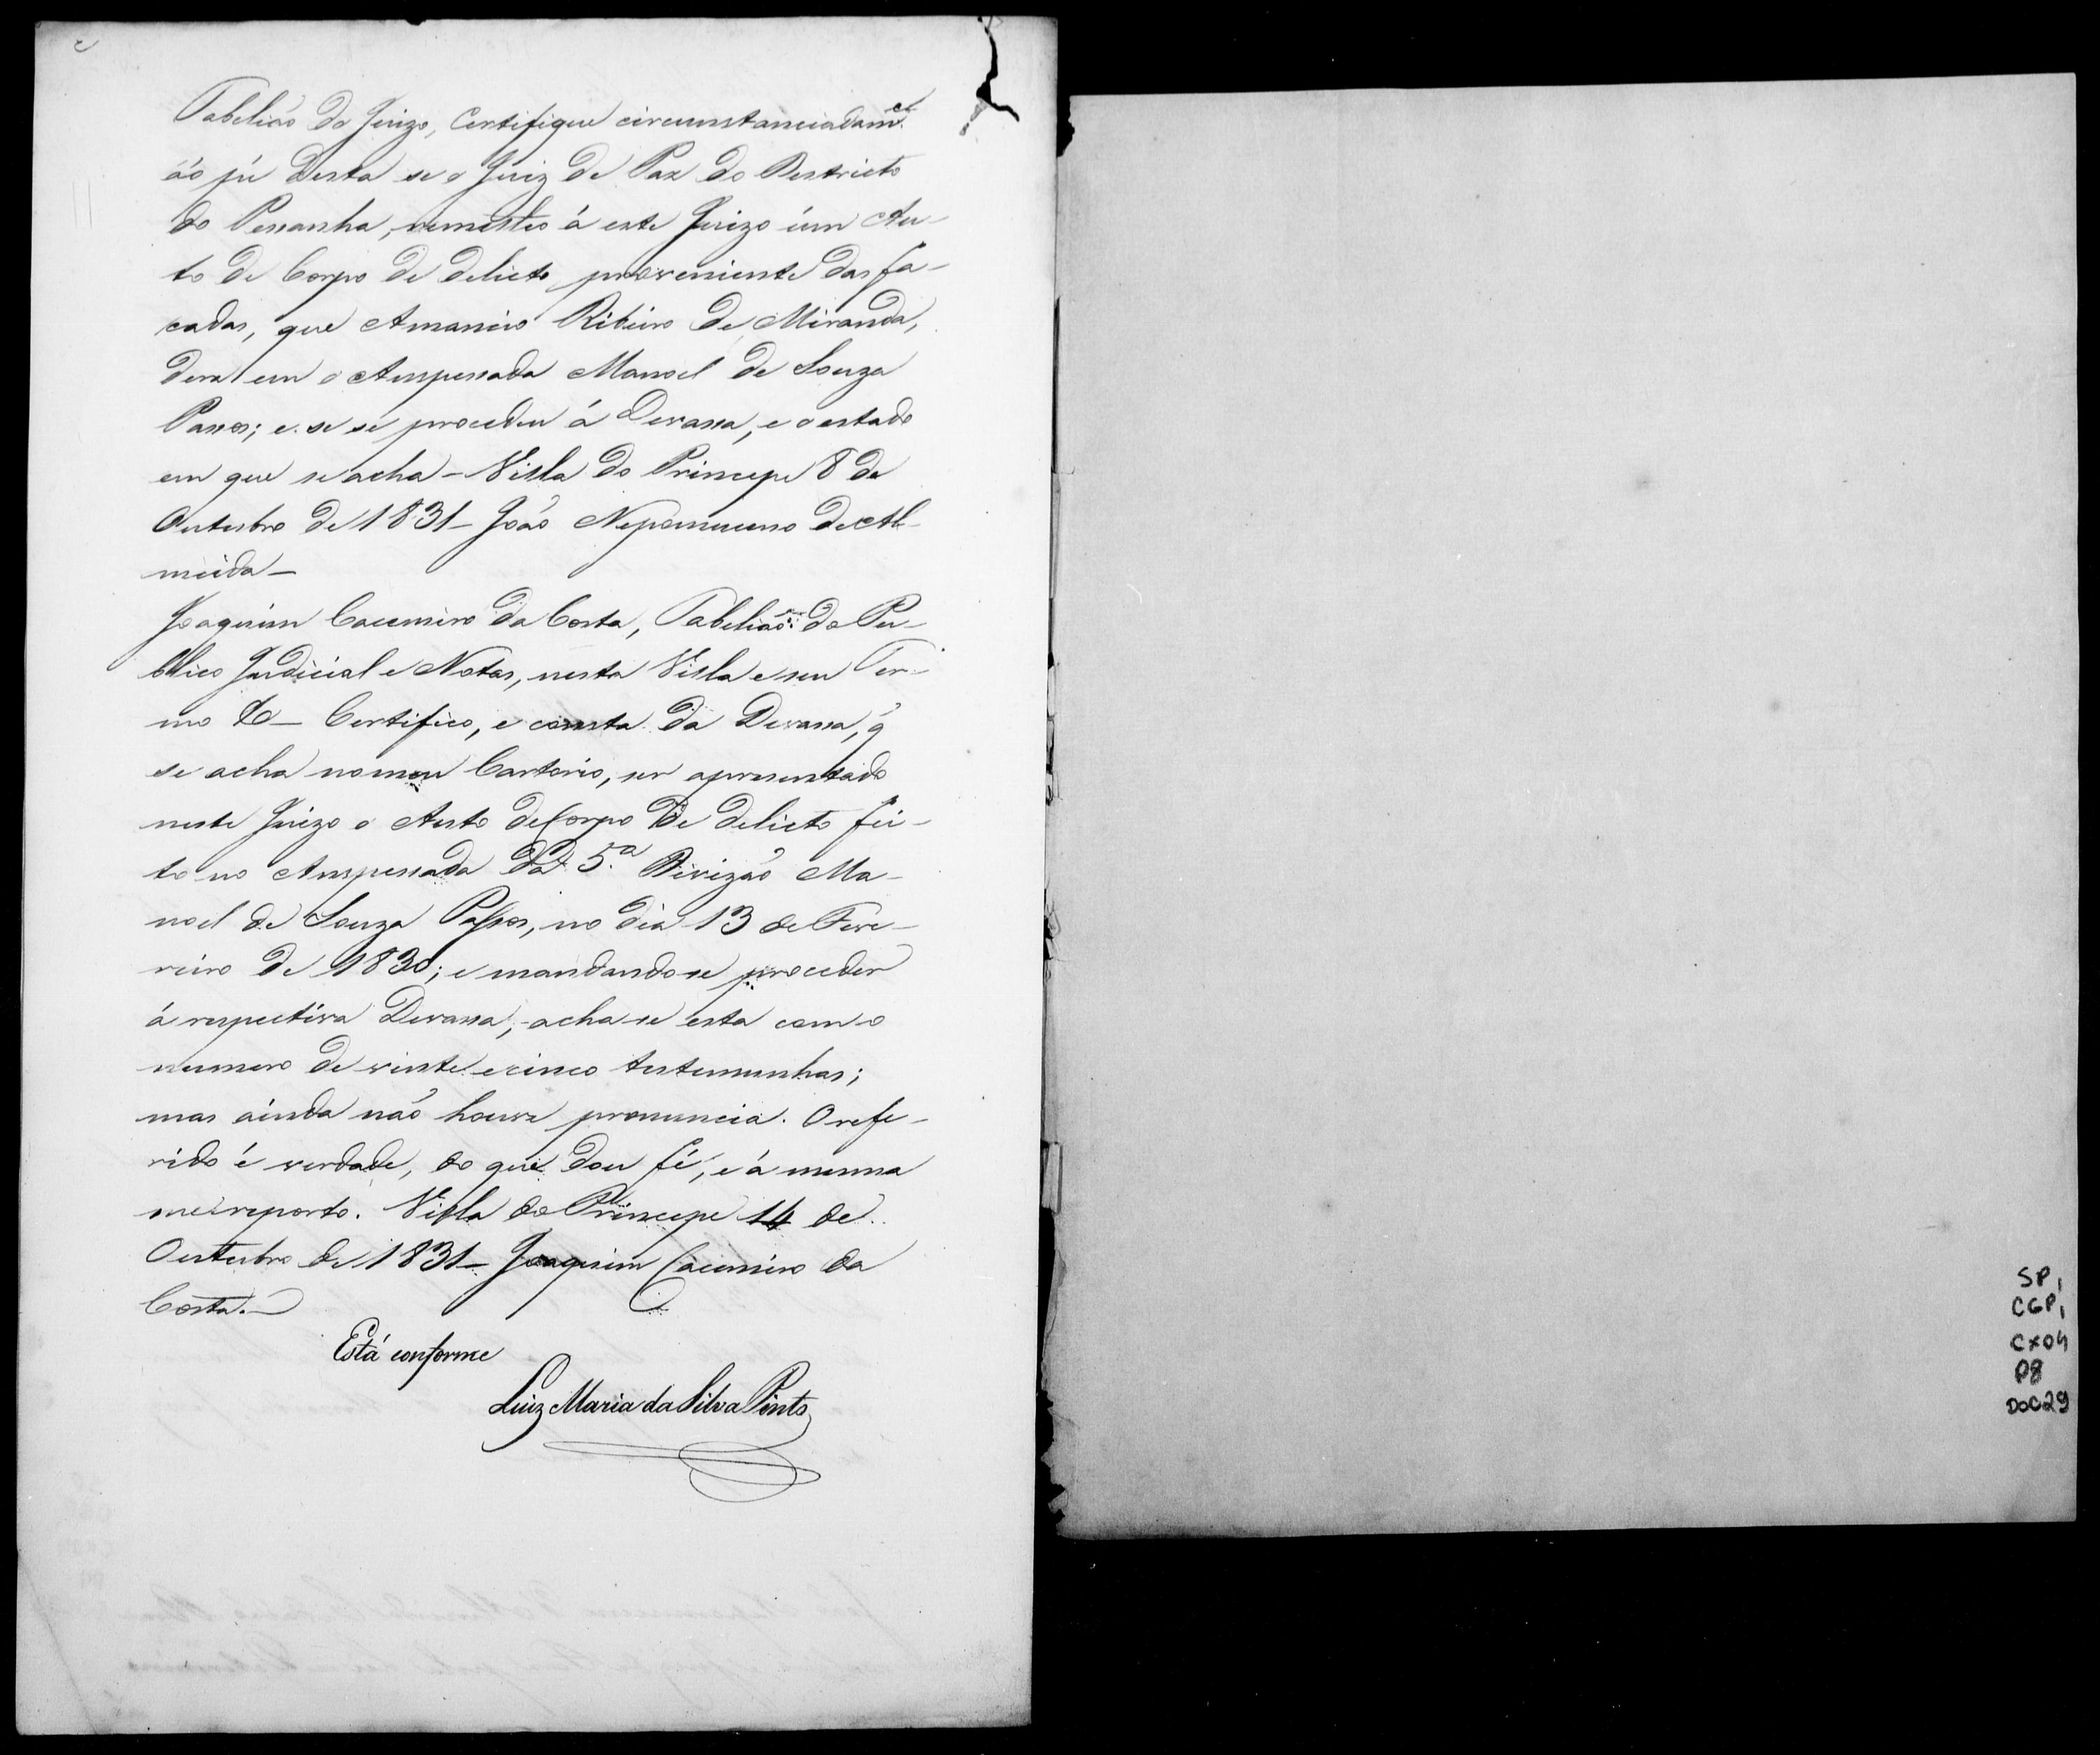 Tabelião do Juizo, Certifique circumstanciadam.e
áo pé desta se o Juiz de Paz do Destricto
do Pessanha, remetteo á este Juizo úm Au-
to de Corpo de delicto proveniente das fa-
cadas, que Amancio Ribeiro de Miranda,
dera em o Anspessada Manoel de Souza
Passos; e se se procedeu á Devassa, e o estado
em que se acha - Villa do Principe 8 de
Outubro de 1831 - João Nepomuceno de Al-
meida -
Joaquim Cacemiro da Costa, Tabelião do Pu-
blico Judicial e Notas, nesta Villa e seu Ter-
mo &- Certifico, e consta da Devassa, q̃
se acha no meu Cartorio, ser apresentado
neste Juizo o Auto de Corpo de delicto fei-
to no Anspessada da 5.a Divizão Ma-
noel de Souza Passos, no dia 13 de Feve-
reiro de 1830; e mandando-se proceder
á respectiva Devassa, acha-se esta com o
numero de vinte e cinco testemunhas;
mas ainda não houve pronuncia. O refe-
rido é verdade, do que dou fé, e á mesma
me reporto. Villa do Principe 14 de
Outubro de 1831 - Joaquim Cacemiro da
Costa. -
Está conforme
Luiz Maria da Silva Pinto
SP,
CGP,
CX04
P8
DOC29